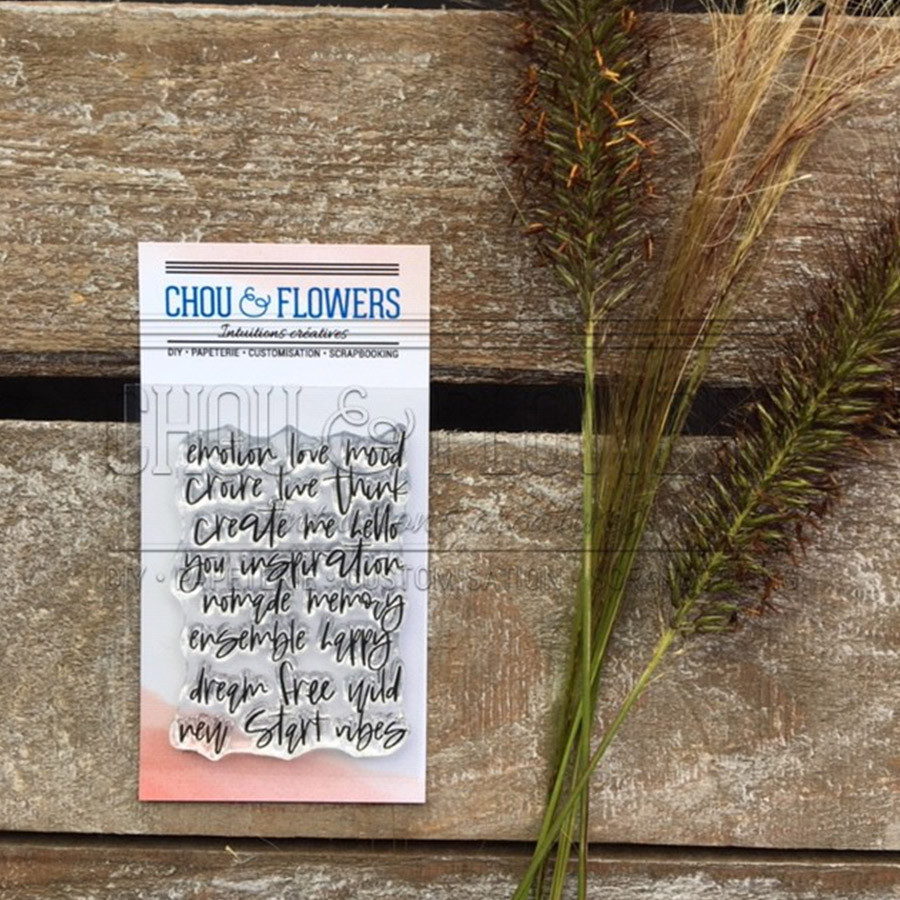 CHOU & FLOWERS
Intuitions créatives
DIY • PAPETERIE • CUSTOMISATION • SCRAPBOOKING
CHOU & FLOWERS
DIY • PAPETERIE • CUSTOMISATION • SCRAPBOOKING
emotion love mood
croire live think
create me hello
you inspiration
nomade memory
ensemble happy
dream free wild
new start vibes